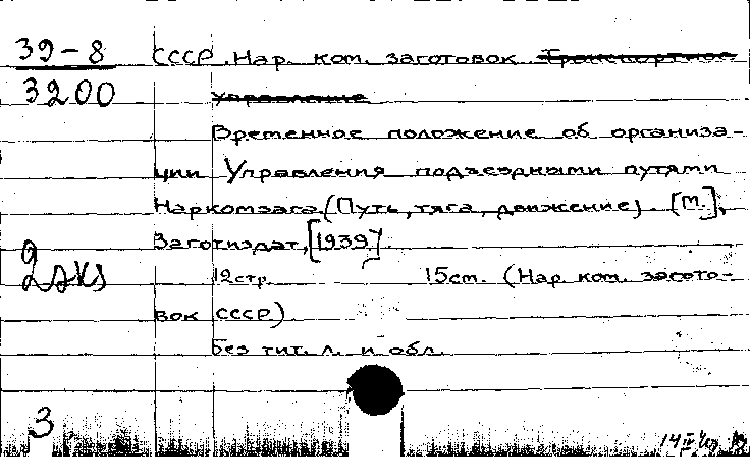 39-8
3200
СССР. Нар. ком. заготовок. Транспортное
управление
Временное положение об организа-
ции Управления подъездными путями
Наркомзага. (Путь, тяга, движение). [М.],
Заготиздат, [1939.]
12 стр. 15 см. (Нар. ком. загото-
вок СССР)
Без тит. л. и обл.
2 экз
3
14 IV